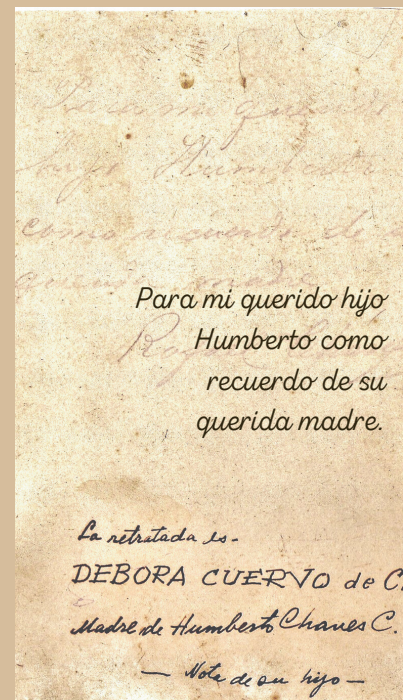 Para mi querido
hijo Humberto
como recuerdo de
querida madre
Para mi querido hijo
Humberto como
recuerdo de su
querida madre.
La retratada es-
DEBORA CUERVO de C
Madre de Humberto Chaves C.
— Nota de su hijo —